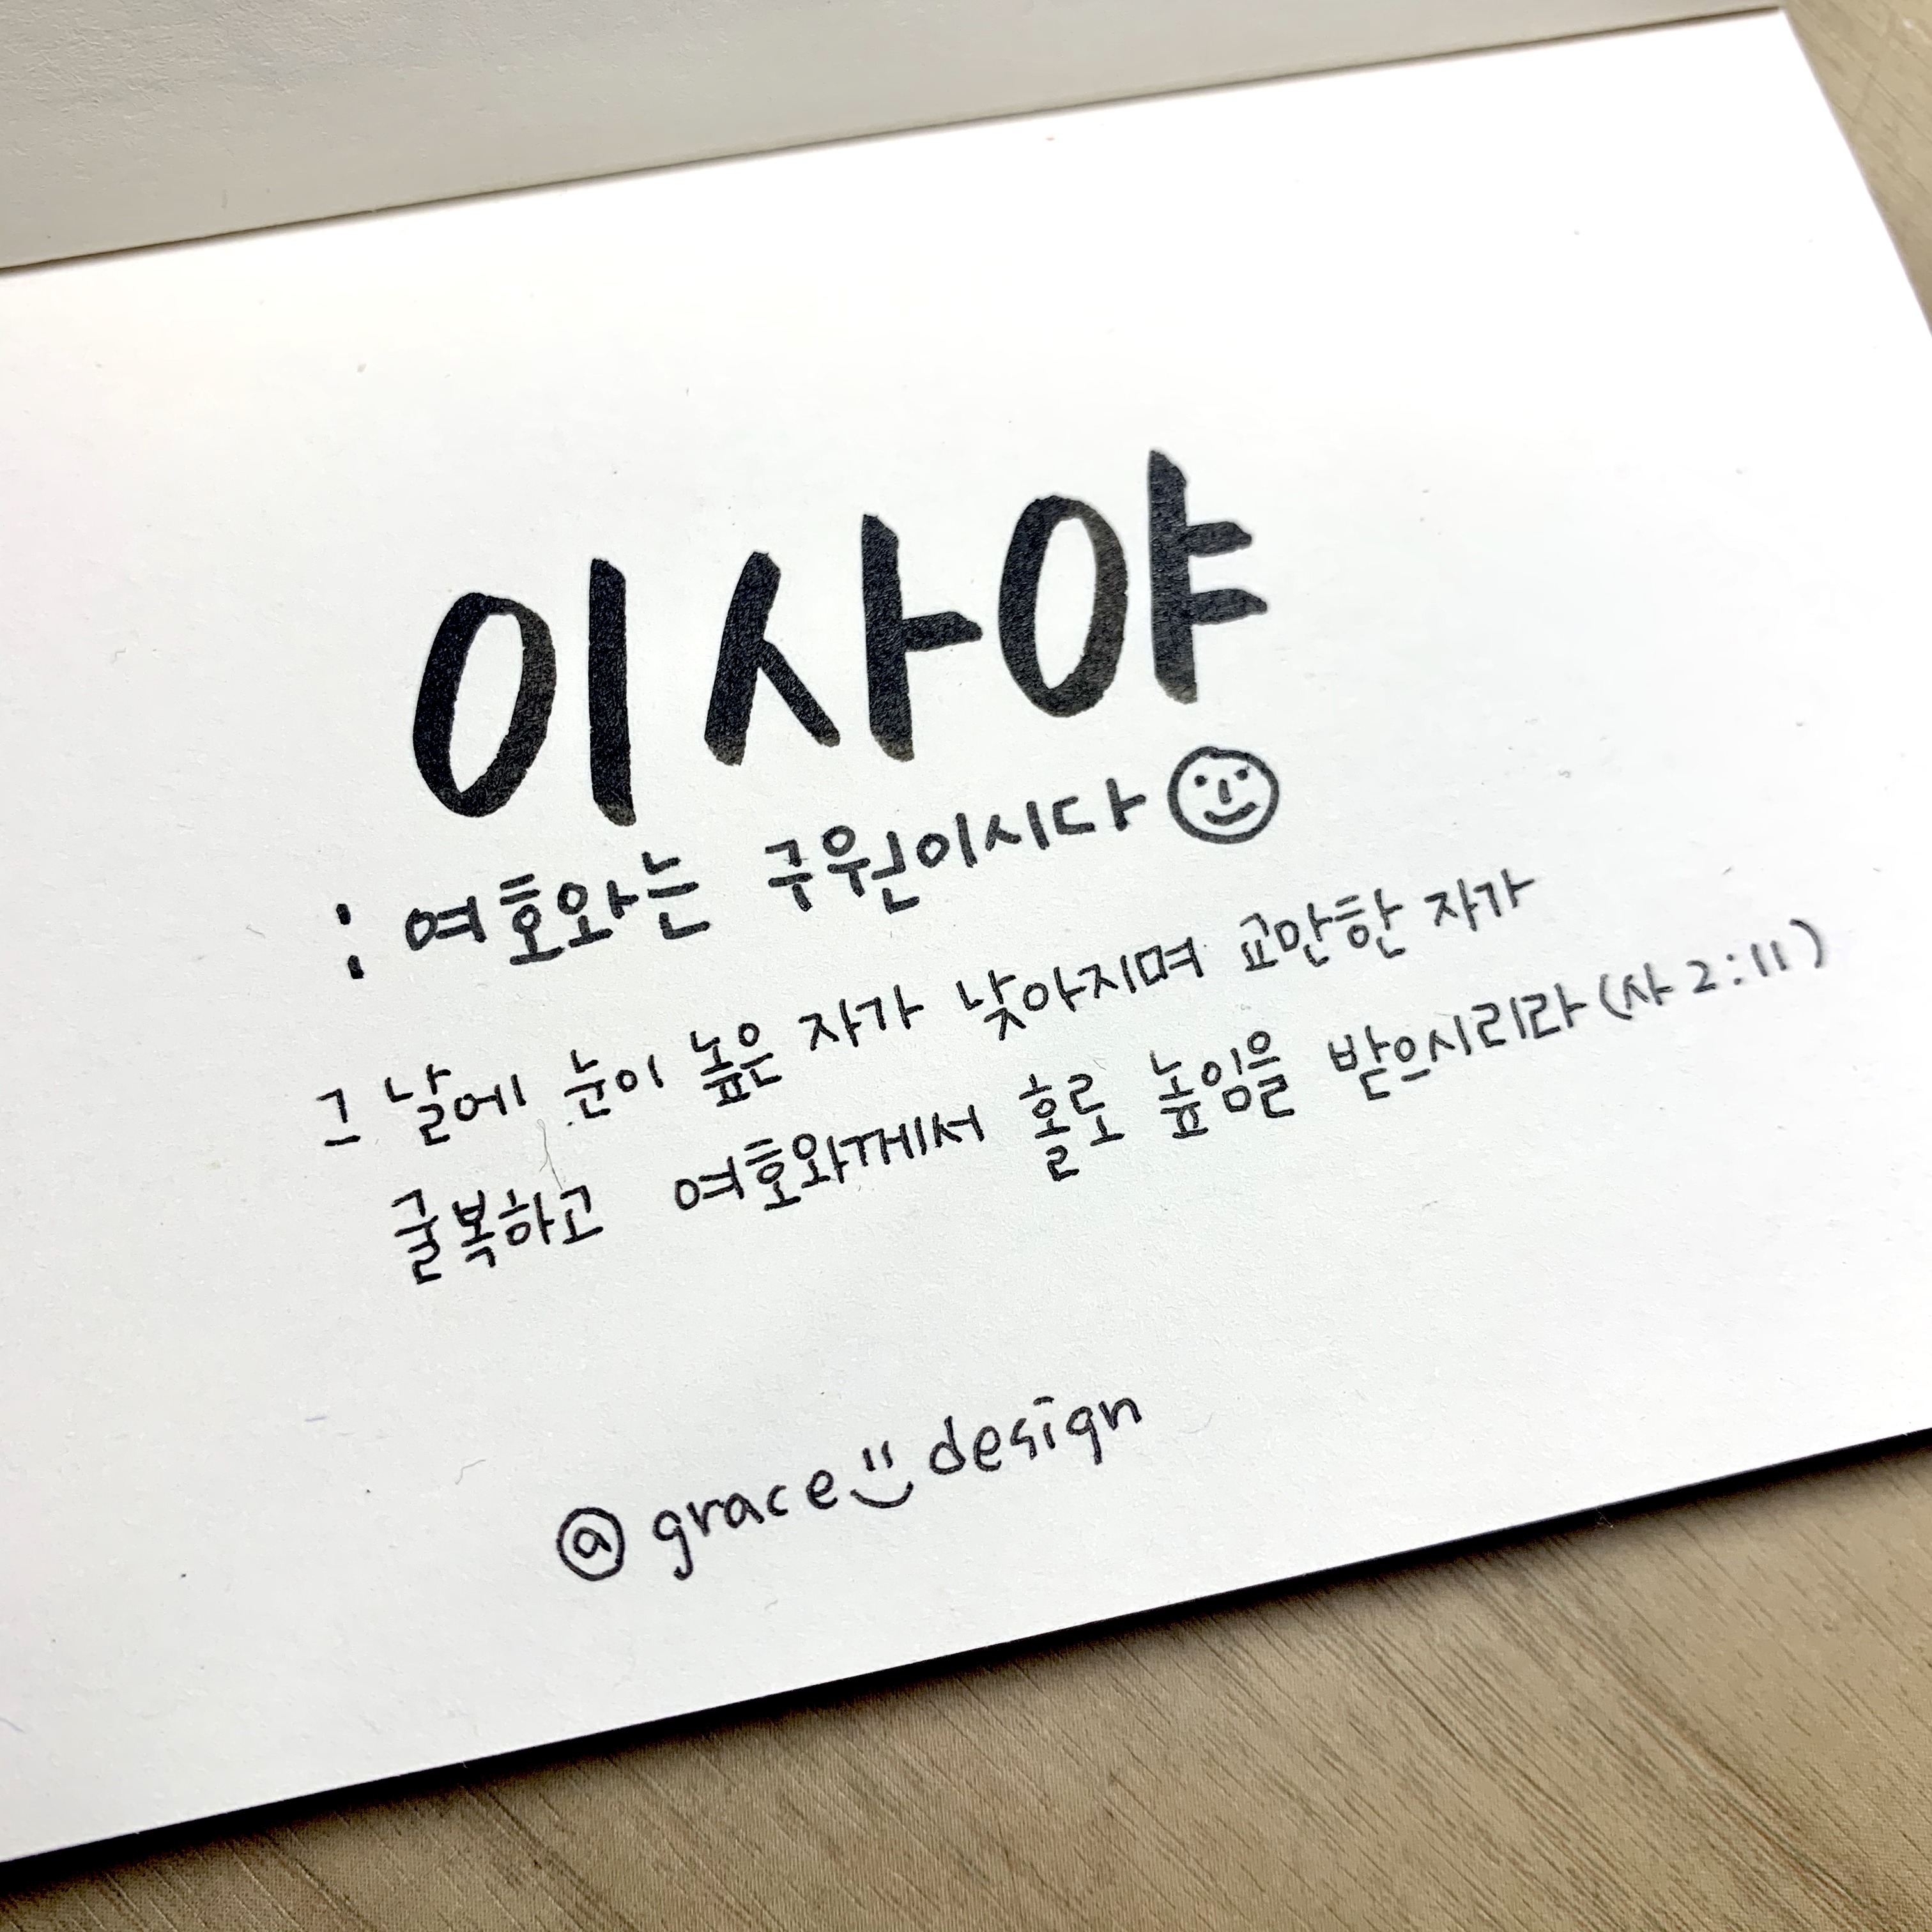 이사야
: 여호와는 구원이시다
그 날에 눈이 높은 자가 낮아지며 교만한 자가
굴복하고 여호와께서 홀로 높임을 받으시리라 (사 2:11)
@grace design